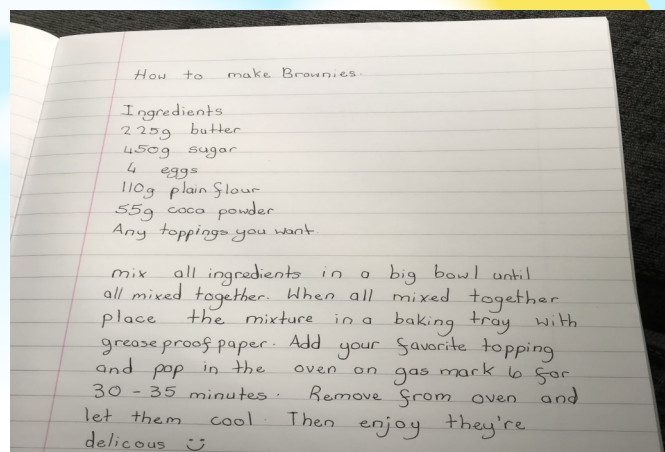 How to make Brownies.
Ingredients
225g butter
450g sugar
4 eggs
110g plain flour
55g coca powder
Any toppings you want.
mix all ingredients in a big bowl until
all mixed together. When all mixed together
place the mixture in a baking tray with
greaseproof paper. Add your favorite topping
and pop in the oven on gas mark 6 for
30 - 35 minutes. Remove from oven and
let them cool. Then enjoy they're
delicous :)